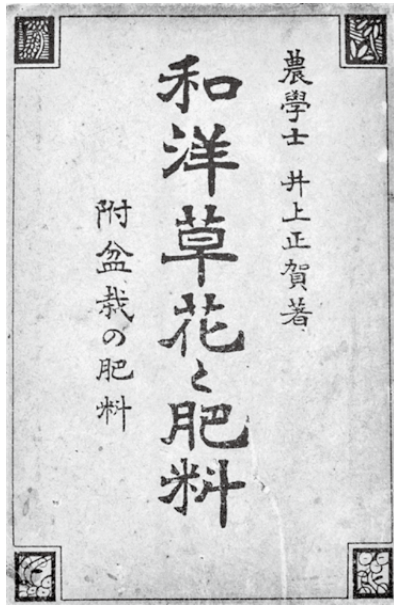 農學士 井上正賀著
和洋草花と肥料
附盆栽の肥料